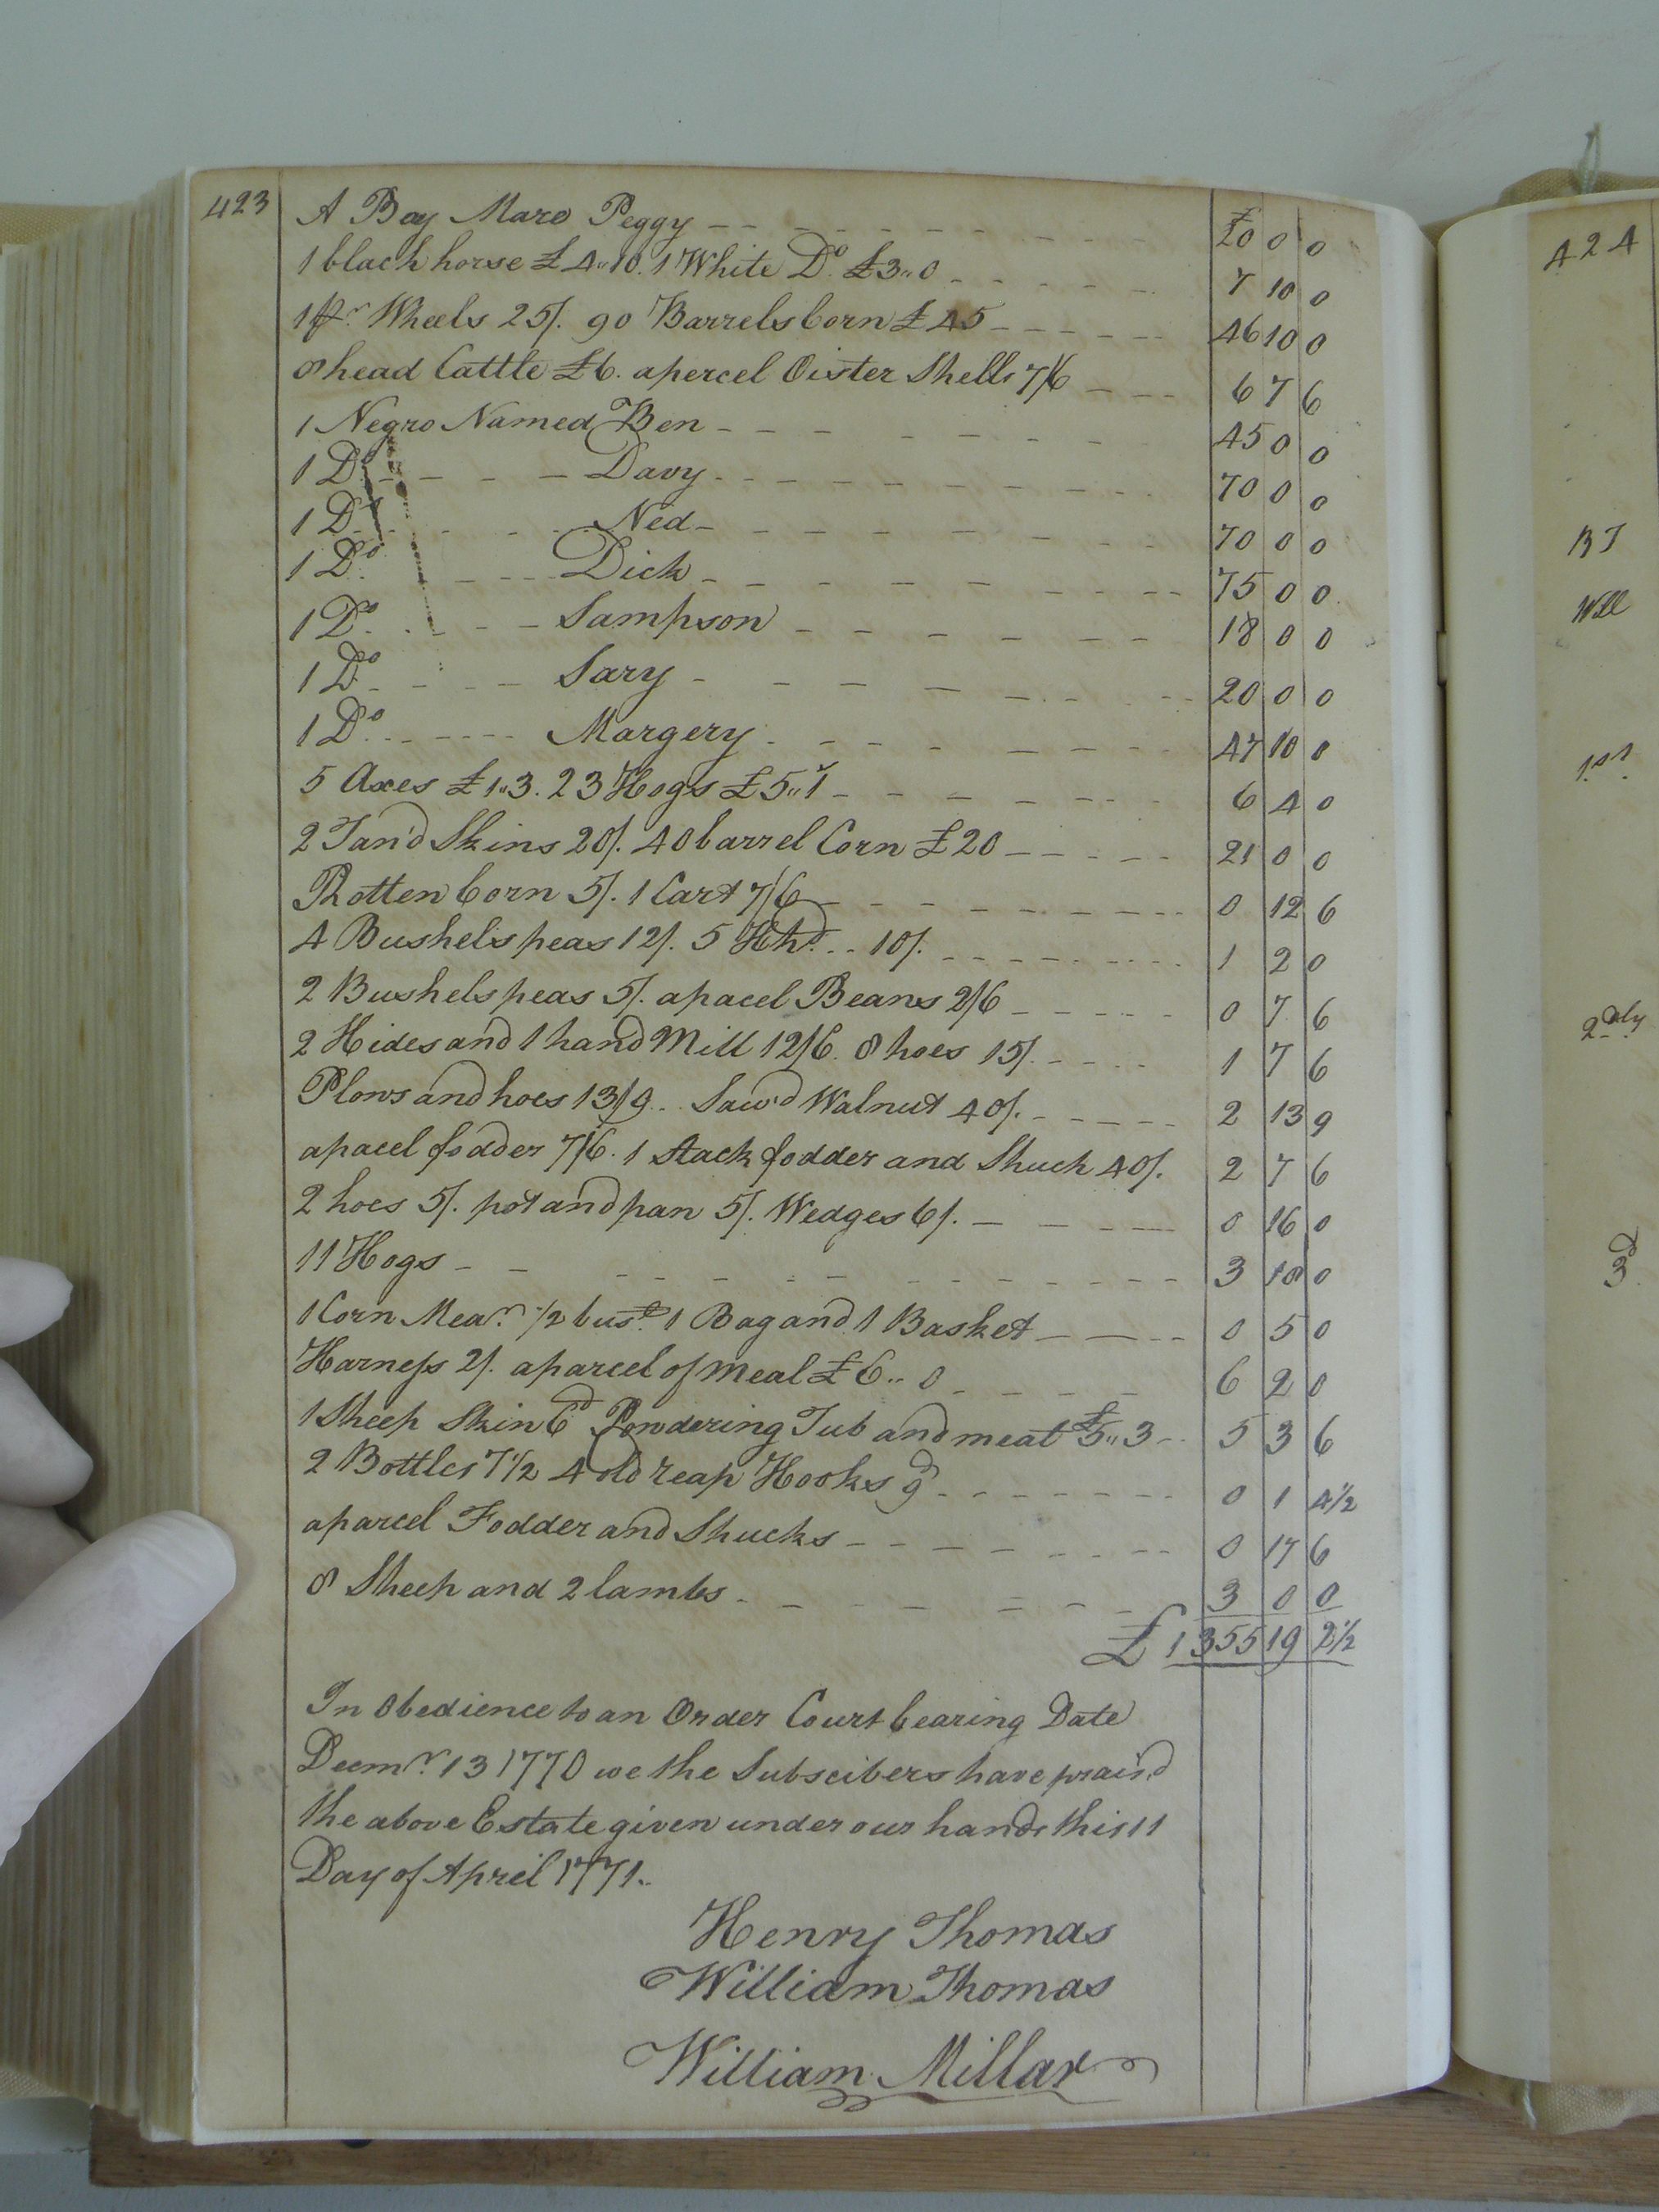 423
A Bay Mare Peggy £0 0 0
1 black horse £4..10. 1 White Do. £3..0 7 10 0
1 pr. Wheels 25/. 90 Barrels Corn £45 46 10 0
8 head Cattle £6. apercel Oister Shells 7/6 6 7 6
1 Negro Named Ben 45 0 0
1 Do. Davy 70 0 0
1 Do. Ned 70 0 0
1 Do. Dick 75 0 0
1 Do. Sampson 18 0 0
1 Do. Sary 20 0 0
1 Do. Margery 47 10 0
5 Axes £1..3. 23 Hogs £5..1 6 4 0
2 Tan'd Skins 20/. 40 barrel Corn £20 21 0 0
Rotten Corn 5/. 1 Cart 7/6 0 12 6
4 Bushels peas 12/. 5 Hhd. 10/. 1 2 0
2 Bushels peas 5/. apacel Beans 2/6 0 7 6
2 Hides and 1 hand Mill 12/6. 8 hoes 15/. 1 7 6
Plows and hoes 13/9.. Saw'd Walnut 40/. 2 13 9
apacel fodder 7/6. 1 Stack fodder and Shuck 40/. 2 7 6
2 hoes 5/. pot and pan 5/. Wedges 6/. 0 16 0
11 Hogs 3 18 0
1 Corn Mear. 1/2 bust. 1 Bag and 1 Basket 0 5 0
Harness 2/. aparcel of meal £6..0 6 2 0
1 Sheep Skin 6d Powdering Tub and meat £5..3 5 3 6
2 Bottles 7 1/2 4 old reap Hooks 9d 0 1 4 1/2
aparcel Fodder and Shucks 0 17 6
8 Sheep and 2 lambs 3 0 0
£1355 19 2 1/2
In Obedience to an Order Court bearing Date
Decmr. 13 1770 we the Subscibers have prais'd
the above Estate given under our hands this 11
Day of April 1771..
Henry Thomas
William Thomas
William Millar
424
Will
1st.
2dly.
3d.